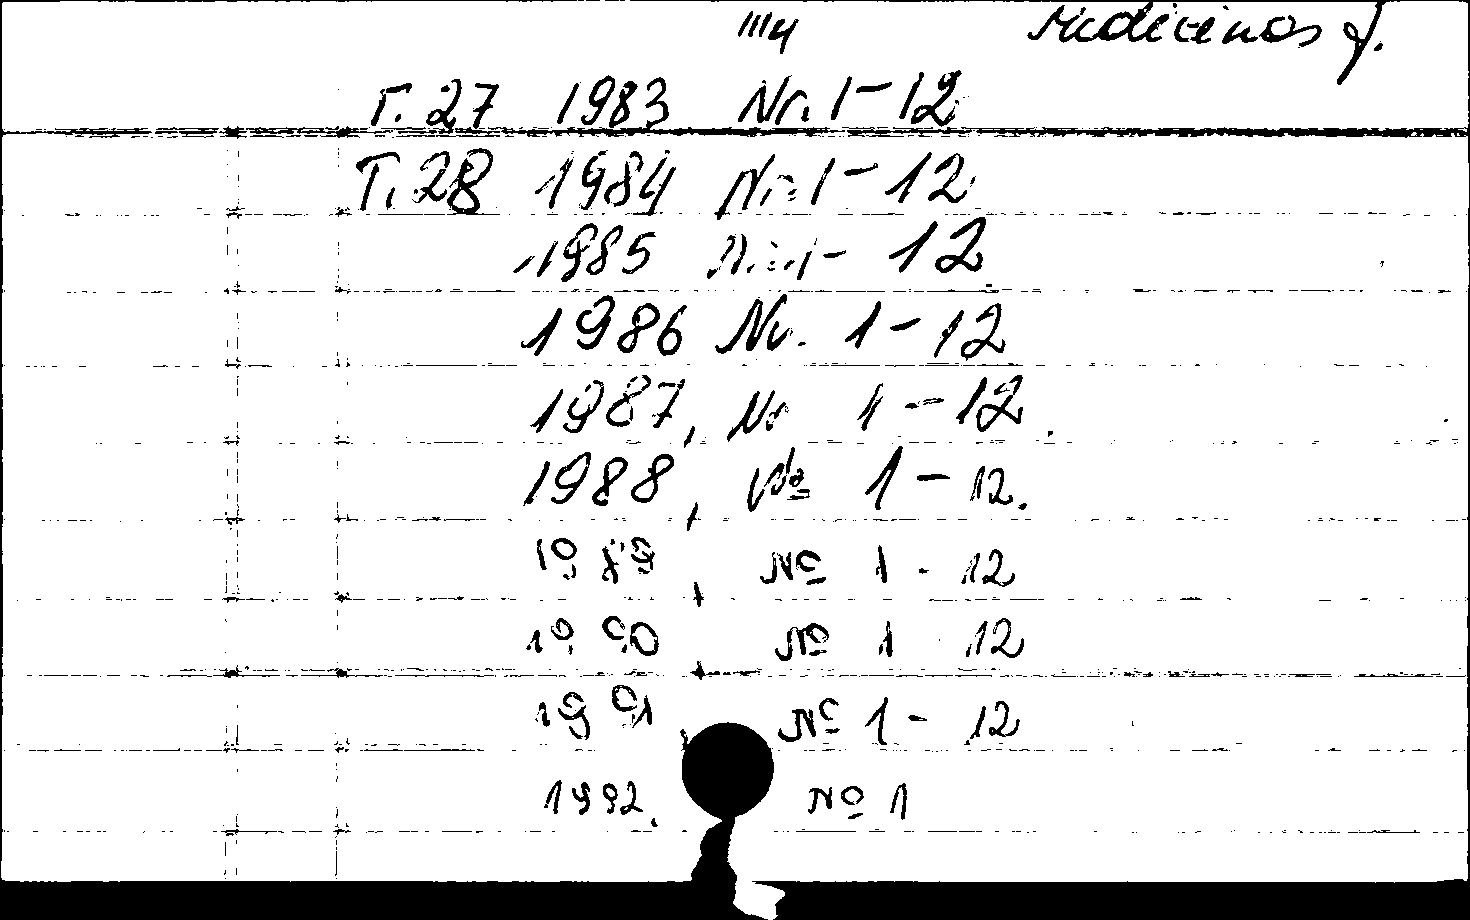 Medicinos f.
T. 27 1983 Nr. 1-12
T. 28 1984 Nr. 1-12
1985 Nr. 1-12
1986 Nr. 1-12
1987, Nr 1-12
1988, № 1-12.
1989, № 1-12
1990 № 1 12
1991 № 1-12
1992. № 1